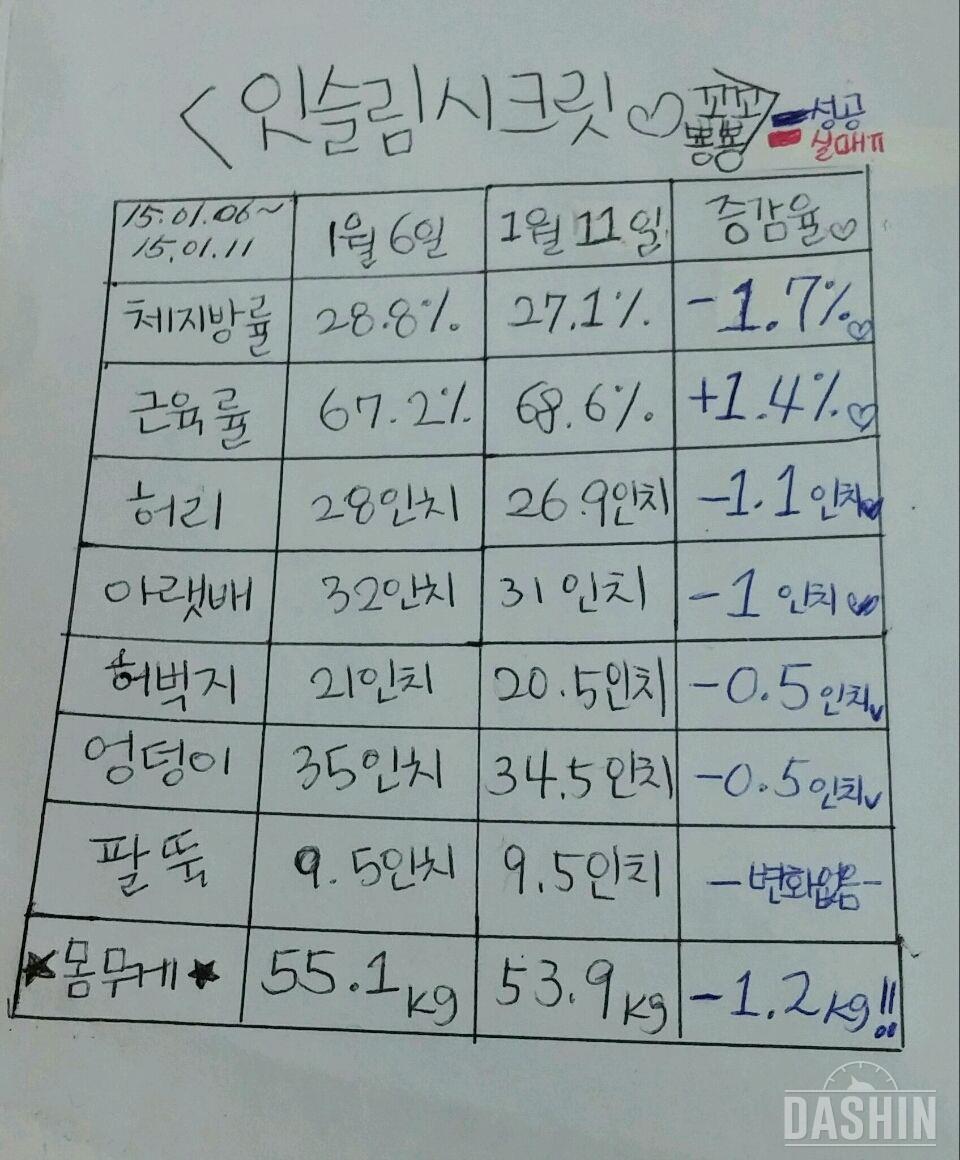 <잇슬림시크릿♡
꼬꼬
뿅뿅
-성공
-실패ㅠ
15.01.06~
15.01.11
1월 6일 1월 11일 증감율♡
체지방률 28.8% 27.1% -1.7%♡
근육률 67.2% 68.6% +1.4%♡
허리 28인치 26.9인치 -1.1인치♥
아랫배 32인치 31인치 -1인치♥
허벅지 21인치 20.5인치 -0.5인치✓
엉덩이 35인치 34.5인치 -0.5인치✓
팔뚝 9.5인치 9.5인치 -변화없음-
★몸무게★ 55.1kg 53.9kg -1.2kg!!
DASHIN